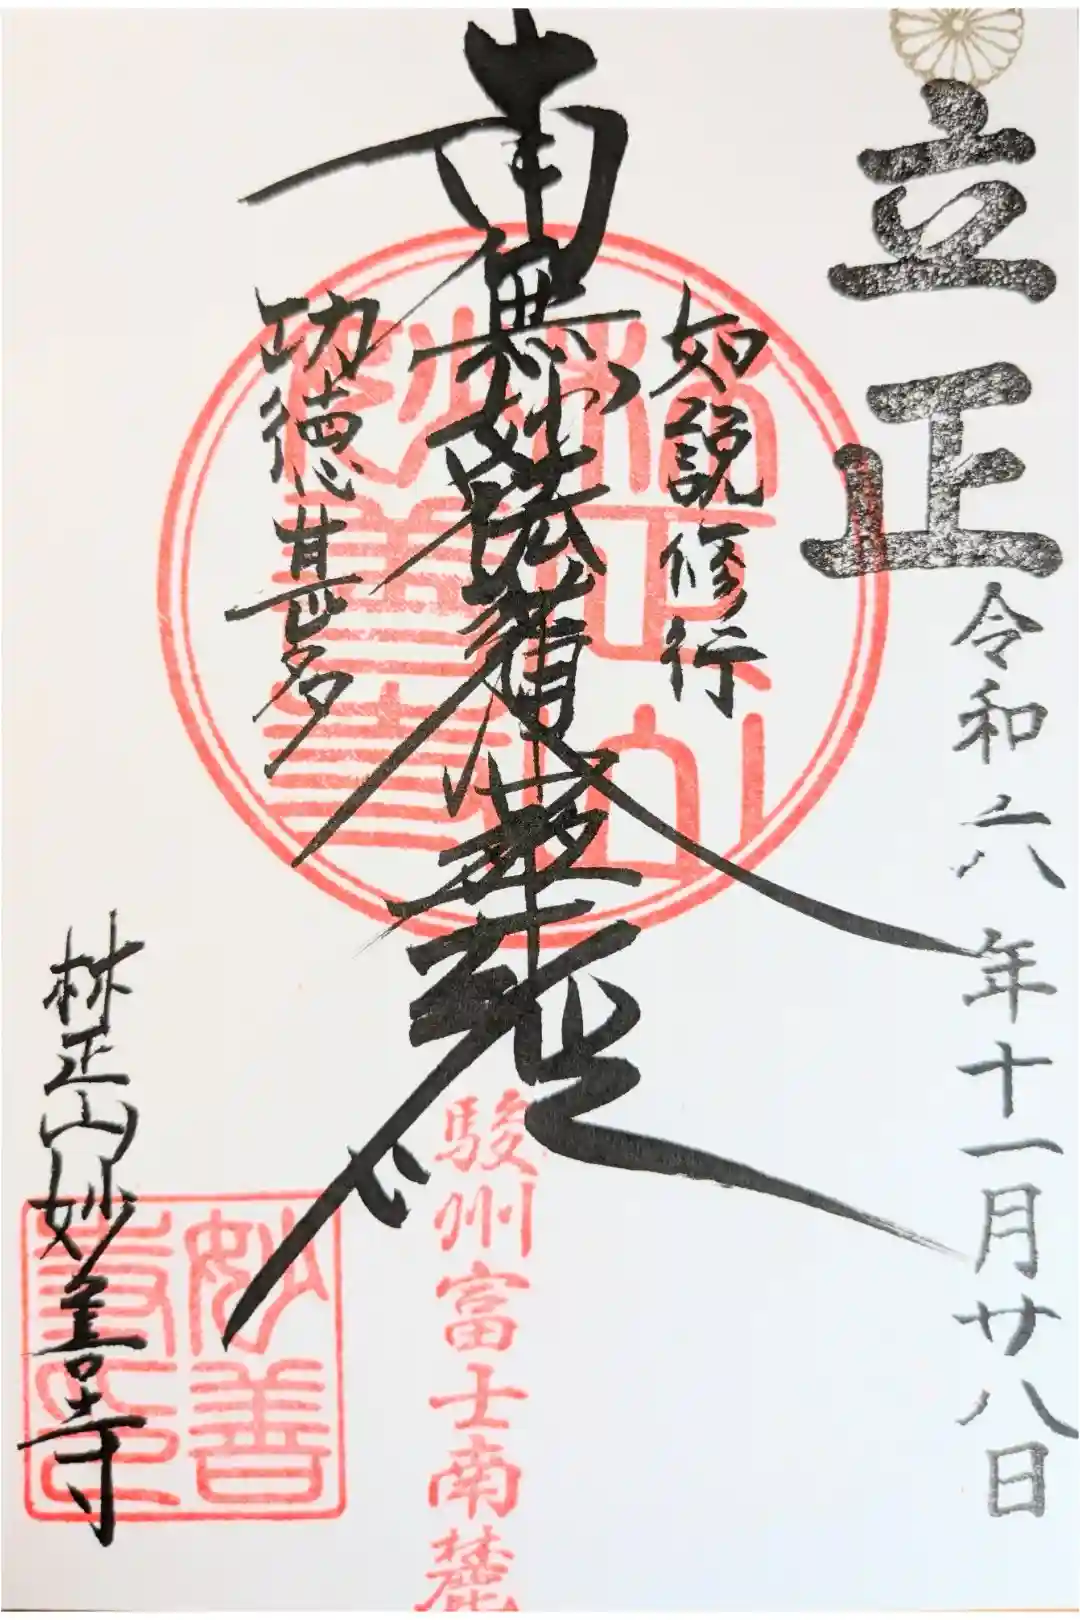 立正
令和六年十一月廿八日
如説修行
南無妙法蓮華経
功徳甚多
駿州富士南麓
林正山妙善寺
林正山
妙善寺
妙善
寺印